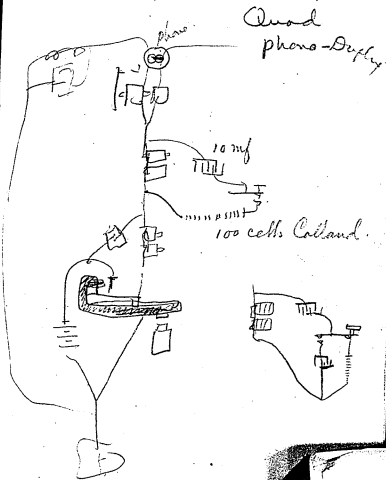 Quad
phono-Duplex
phono
10 mf
100 cells Calland.